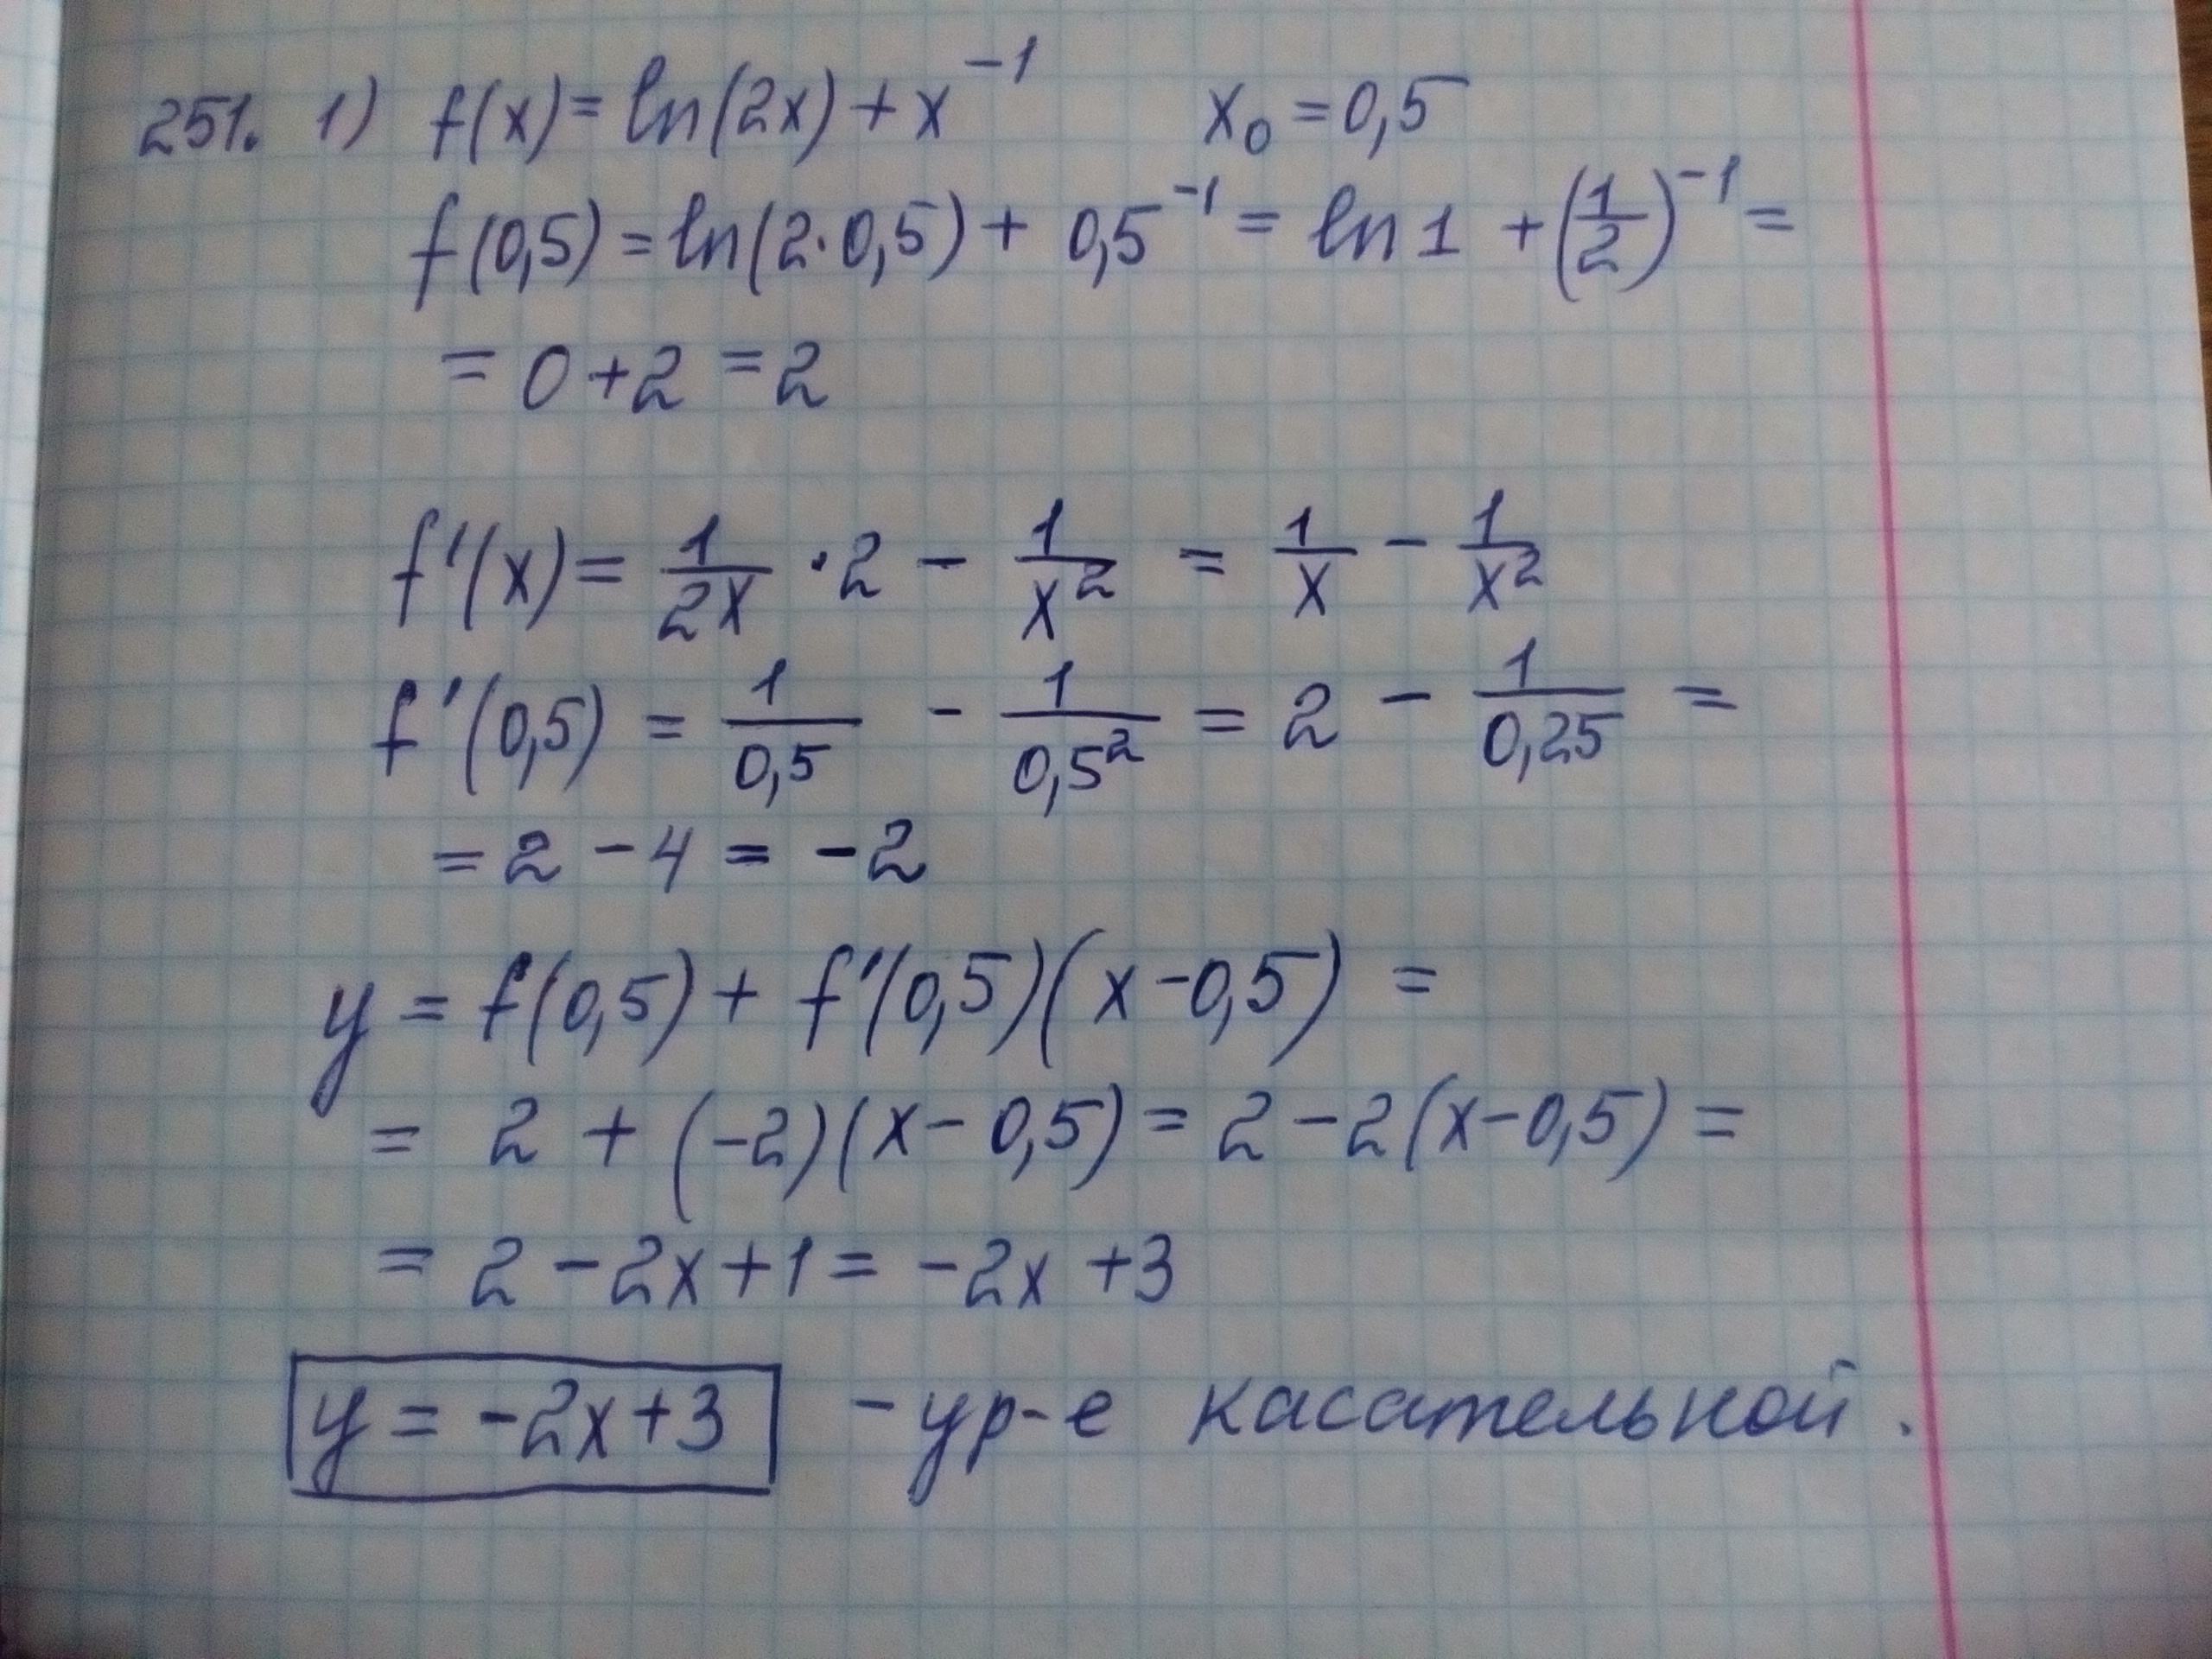 251. 1) f(x) = ln(2x) + x⁻¹ x₀ = 0,5
f(0,5) = ln(2·0,5) + 0,5⁻¹ = ln 1 + (1/2)⁻¹ =
= 0 + 2 = 2
f'(x) = 1/2x · 2 - 1/x² = 1/x - 1/x²
f'(0,5) = 1/0,5 - 1/0,5² = 2 - 1/0,25 =
= 2 - 4 = -2
y = f(0,5) + f'(0,5)(x - 0,5) =
= 2 + (-2)(x - 0,5) = 2 - 2(x - 0,5) =
= 2 - 2x + 1 = -2x + 3
y = -2x + 3 - ур-е касательной.